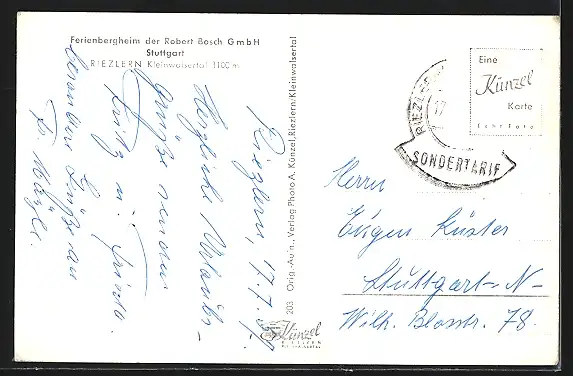 Ferienbergheim der Robert Bosch GmbH
Stuttgart
RIEZLERN Kleinwalsertal 1100 m
Riezlern, 17.7.
Herzliche Urlaubs-
grüße senden
Fritz u.
besondere Grüße an
Fr.
203 Orig.-Aufn., Verlag Photo A. Künzel, Riezlern/Kleinwalsertal
Künzel
RIEZLERN
KLEINWALSERTAL
RIEZLER
17
SONDERTARIF
Eine
Künzel
Karte
Echt Foto
Herrn
Eugen Küster
Stuttgart-N-
Wilh. Blosstr. 78.